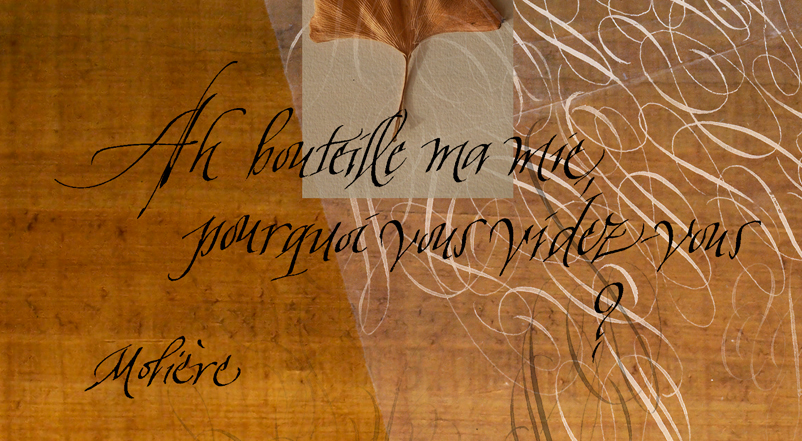 Ah bouteille ma mie,
pourquoi vous videz-vous
?
Molière